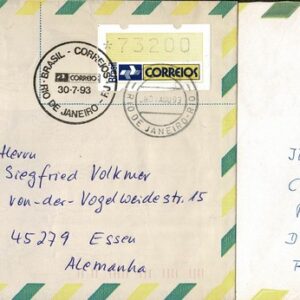 *73200
BRASIL - CORREIOS
CORREIOS
30-7-93
RIO DE JANEIRO - RJ
CORREIOS
RIO DE JANEIRO - RIO
Herrn
Siegfried Volkmer
von-der-Vogelweidestr. 15
45279 Essen
Alemanha